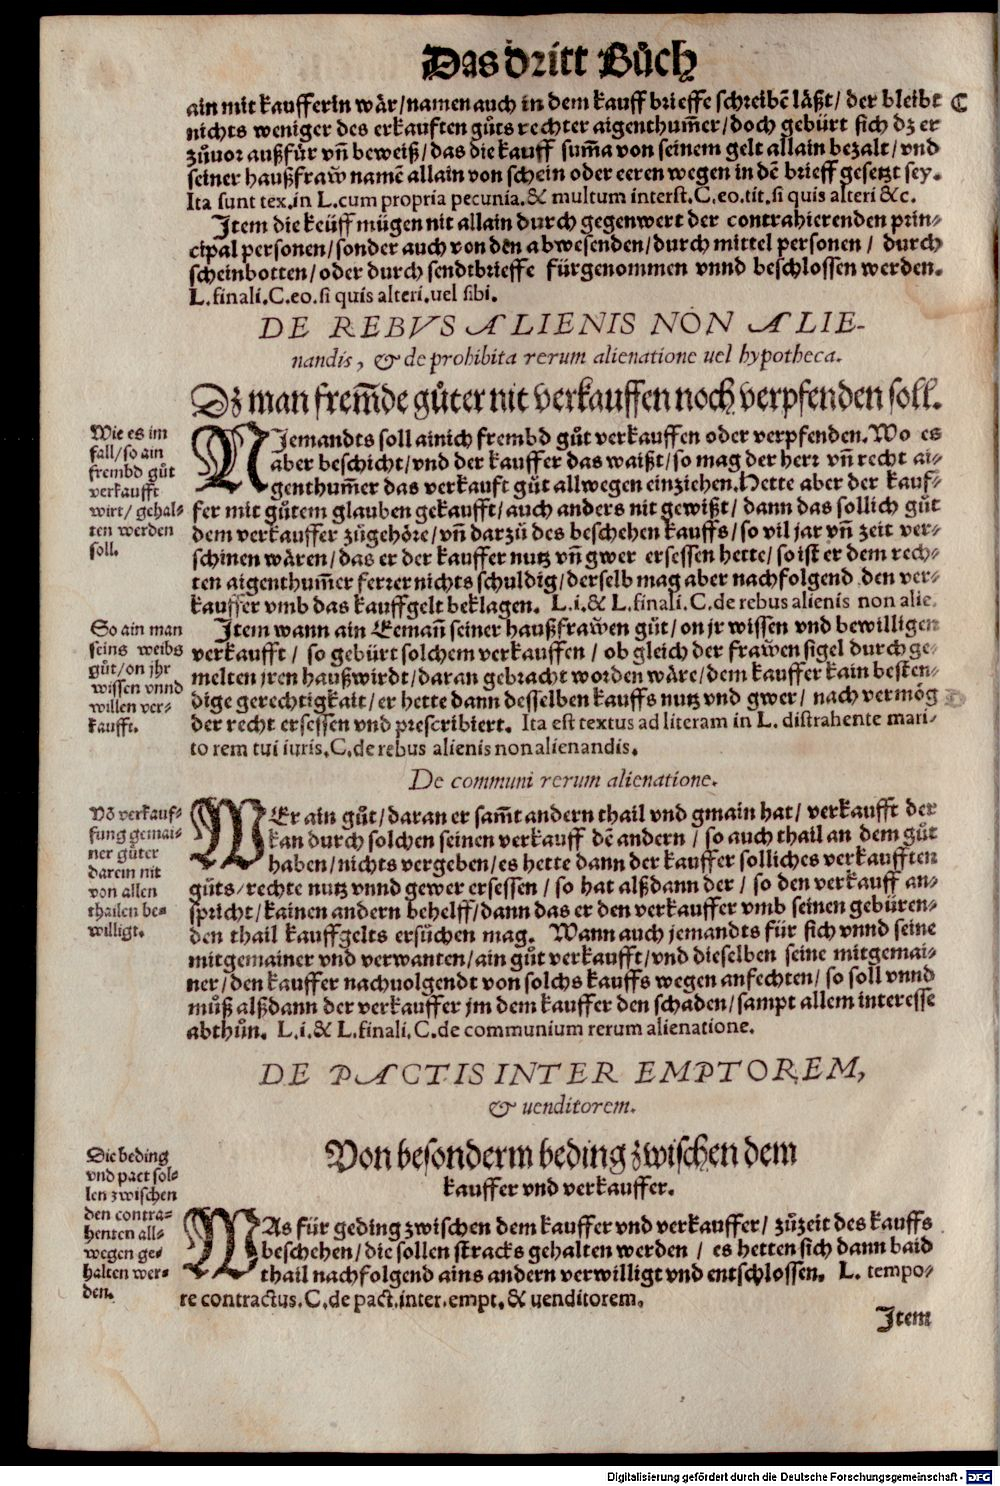 Das dritt Bůch
ain mit kaufferin wär/namen auch in dem kauff brieffe schreibẽ läßt/ der bleibt
nichts weniger des erkauften gůts rechter aigenthum̃er/doch gebürt sich dz er
zůuor außfür vñ beweiß/das die kauff sum̃a von seinem gelt allain bezalt/vnd
seiner haußfraw namẽ allain von schein oder eeren wegen in dẽ brieff gesetzt sey.
Ita sunt tex.in L.cum propria pecunia.& multum interst.C.eo.tit.si quis alteri &c.
Item die keüff mügen nit allain durch gegenwert der contrahierenden prin-
cipal personen/sonder auch von den abwesenden/durch mittel personen/ durch
scheinbotten/oder durch sendtbrieffe fürgenommen vnnd beschlossen werden.
L.finali.C.eo.si quis alteri.uel sibi.
DE REBVS ALIENIS NON ALIE-
nandis, & de prohibita rerum alienatione uel hypotheca.
Dz man frem̃de gůter nit verkauffen noch verpfenden soll.
Wie es im
fall/so ain
frembd gůt
verkaufft
wirt/ gehal-
ten werden
soll.
NIemandts soll ainich frembd gůt verkauffen oder verpfenden.Wo es
aber beschicht/vnd der kauffer das waißt/so mag der herr vñ recht ai-
genthum̃er das verkauft gůt allwegen einziehen.Hette aber der kauf-
fer mit gůtem glauben gekaufft/auch anders nit gewißt/ dann das sollich gůt
dem verkauffer zůgehöre/vñ darzů des beschehen kauffs/so vil jar vñ zeit ver-
schinen wären/das er der kauffer nutz vñ gwer ersessen hette/so ist er dem rech-
ten aigenthum̃er ferrer nichts schuldig/derselb mag aber nachfolgend den ver-
kauffer vmb das kauffgelt beklagen. L.i.& L.finali.C.de rebus alienis non alie.
So ain man
seins weibs
gůt/on jhr
wissen vnnd
willen ver-
kaufft.
Item wann ain Eemañ seiner haußfrawen gůt/on jr wissen vnd bewilligen
verkaufft/ so gebürt solchem verkauffen/ ob gleich der frawen sigel durch ge-
melten jren haußwirdt/daran gebracht worden wäre/dem kauffer kain besten-
dige gerechtigkait/er hette dann desselben kauffs nutz vnd gwer/ nach vermög
der recht ersessen vnd prescribiert. Ita est textus ad literam in L. distrahente mari-
to rem tui iuris.C.de rebus alienis non alienandis.
De communi rerum alienatione.
Võ verkauf-
fung gemai-
ner gůter
darein nit
von allen
thailen be-
willigt.
WEr ain gůt/daran er sam̃t andern thail vnd gmain hat/ verkaufft der
kan durch solchen seinen verkauff dẽ andern/ so auch thail an dem gůt
haben/nichts vergeben/es hette dann der kauffer solliches verkaufften
gůts/rechte nutz vnnd gewer ersessen/ so hat alßdann der/ so den verkauff an-
spricht/kainen andern behelff/dann das er den verkauffer vmb seinen gebüren-
den thail kauffgelts ersůchen mag. Wann auch jemandts für sich vnnd seine
mitgemainer vnd verwanten/ain gůt verkaufft/vnd dieselben seine mitgemai-
ner/den kauffer nachuolgendt von solchs kauffs wegen anfechten/ so soll vnnd
můß alßdann der verkauffer jm dem kauffer den schaden/sampt allem interesse
abthůn. L.i.& L.finali.C.de communium rerum alienatione.
DE PACTIS INTER EMPTOREM,
& uenditorem.
Von besonderm beding zwischen dem
kauffer vnd verkauffer.
Die beding
vnd pact sol-
len zwischen
den contra-
henten all-
wegen ge-
halten wer-
den.
WAs für geding zwischen dem kauffer vnd verkauffer/ zůzeit des kauffs
beschehen/die sollen stracks gehalten werden/ es hetten sich dann baid
thail nachfolgend ains andern verwilligt vnd entschlossen. L. tempo-
re contractus.C.de pact.inter.empt.& uenditorem.
Item
Digitalisierung gefördert durch die Deutsche Forschungsgemeinschaft - DFG